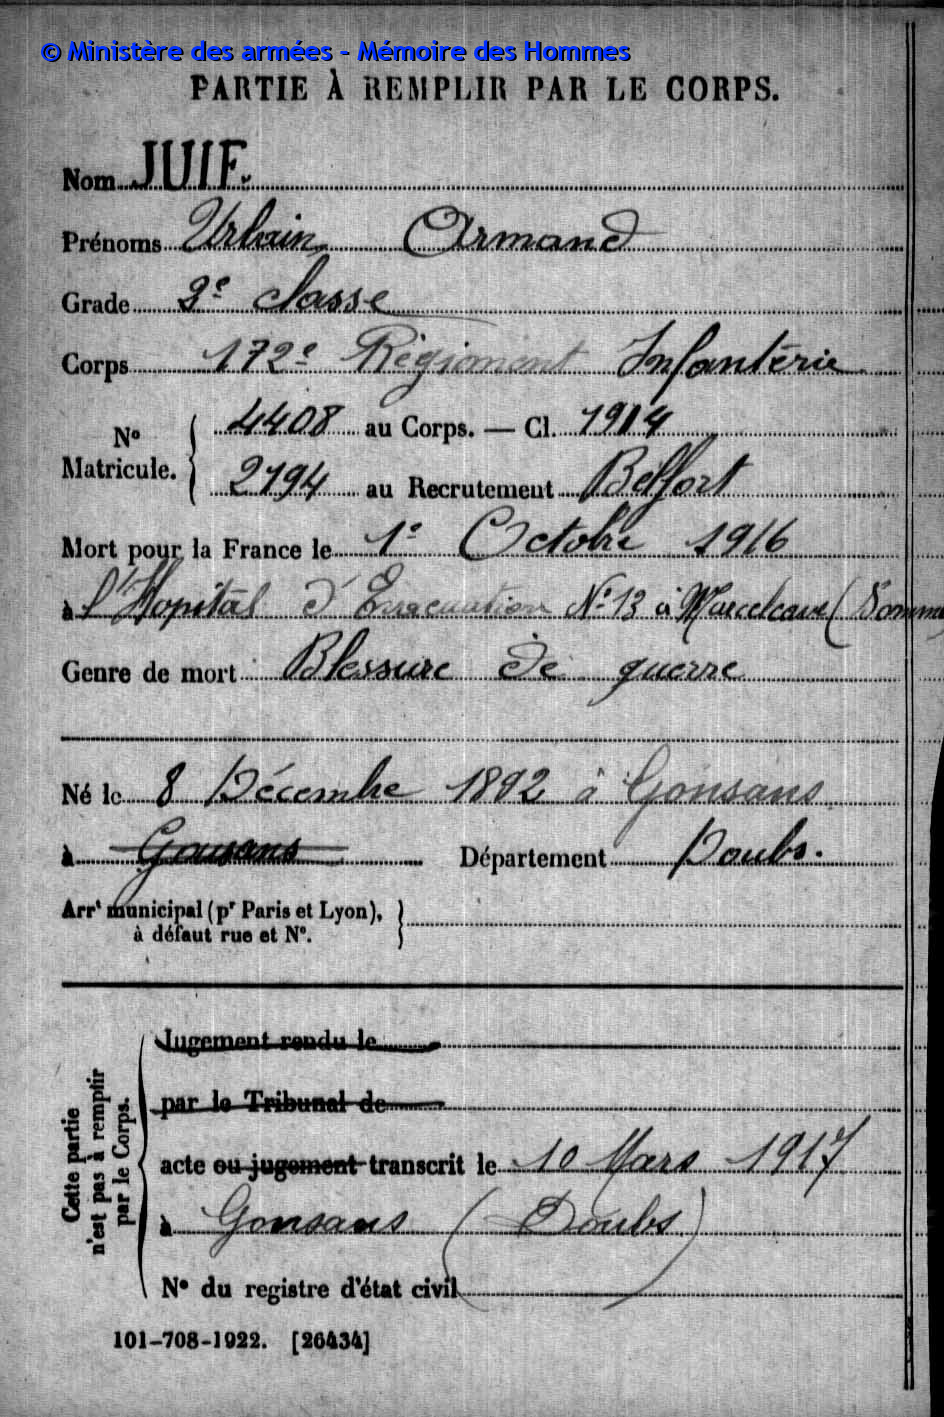 © Ministère des armées - Mémoire des Hommes
PARTIE À REMPLIR PAR LE CORPS.
Nom JUIF.
Prénoms Urbain Armand
Grade 2e classe
Corps 172e Régiment Infanterie
No Matricule. 4408 au Corps. — Cl. 1914
2194 au Recrutement Belfort
Mort pour la France le 1e Octobre 1916
à l'Hopital d'Evacuation No 13 à Marcelcave (Somme)
Genre de mort Blessure de guerre
Né le 8 Décembre 1892 à Gonsans
à Gousans Département Doubs.
Arrt municipal (pr Paris et Lyon),
à défaut rue et No.
Cette partie
n'est pas à remplir
par le Corps.
Jugement rendu le
par le Tribunal de
acte ou jugement transcrit le 10 Mars 1917
à Gonsans (Doubs)
No du registre d'état civil
101-708-1922. [26434]